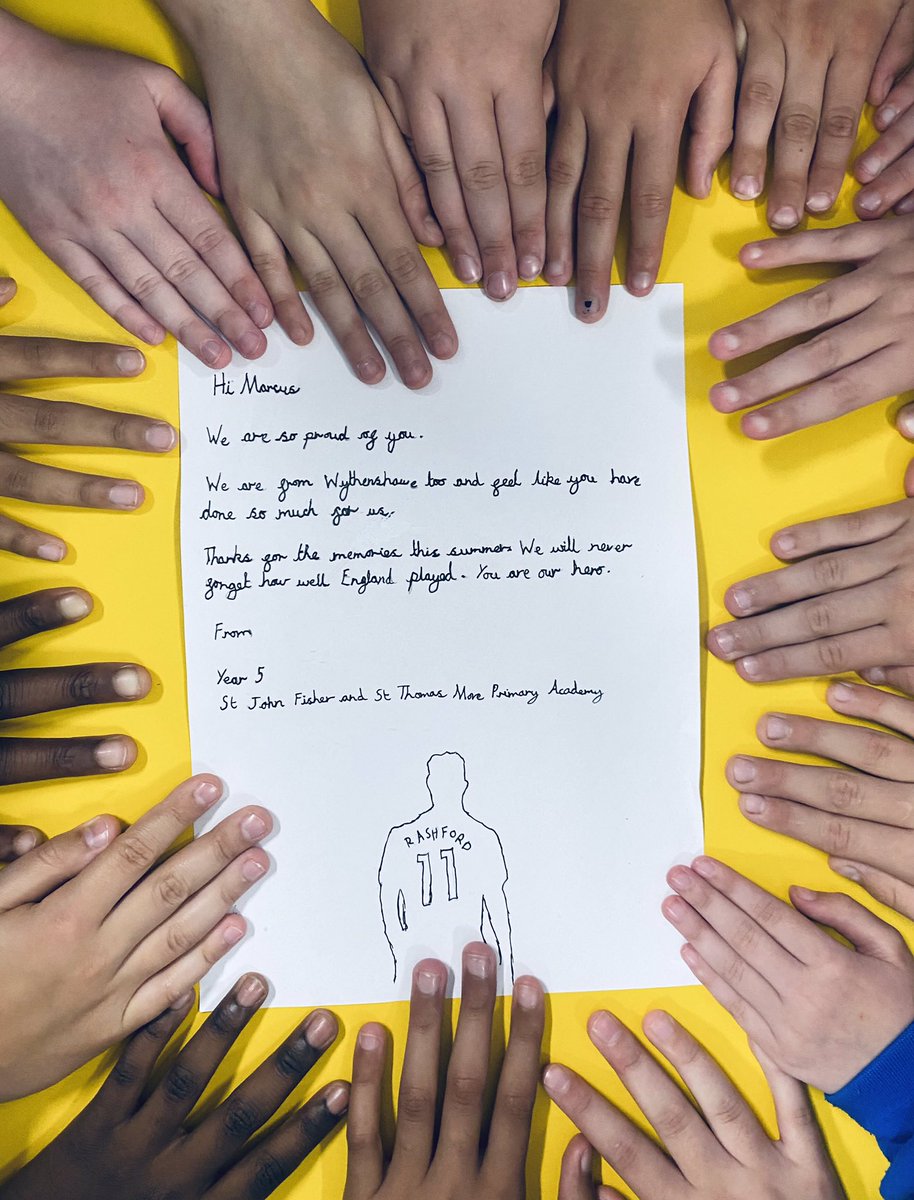 Hi Marcus
We are so proud of you.
We are from Wythenshawe too and feel like you have
done so much for us.
Thanks for the memories this summer. We will never
forget how well England played. You are our hero.
From
Year 5
St John Fisher and St Thomas More Primary Academy
RASHFORD
11